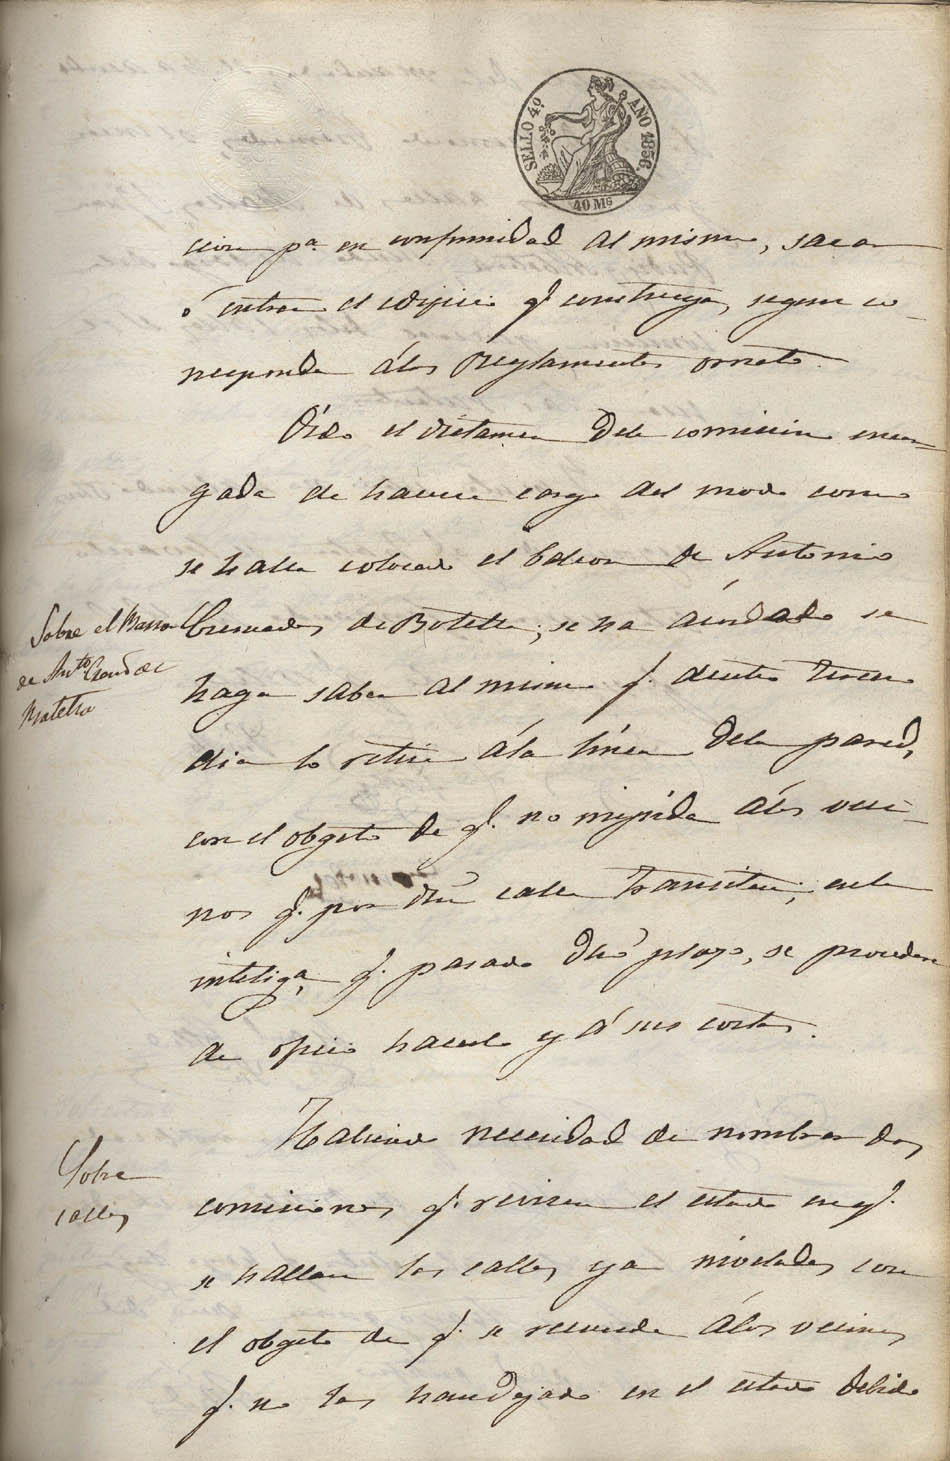 SELLO 4º. AÑO 1856.
40 Ms
cion pª. en conformidad al mismo, sacar
ó entrar el edificio q.e construya, segun co-
rresponda álos Reglamentos ornato.
Oido el dictamen dela comision encar-
gada de hacerse cargo del modo como
se halla colocado el balcon de Antonio
Cremades de Botella; se ha acordado se
haga saber al mismo q.e dentro tercer
dia lo retire ála linea dela pared,
con el obgeto de q.e no impida álos veci-
nos q.e por dha calle transiten; enla
inteligª. q.e pasado dho plazo, se procederá
de oficio hacerlo y á sus costas.
Sobre el
de Antº
Habiendo necesidad de nombrar dos
comisiones q.e revisen el estado en q.e
se hallan las calles ya niveladas con
el obgeto de q.e se recuerde álos vecinos
q.e no las han dejado en el estado debido
Sobre
calles